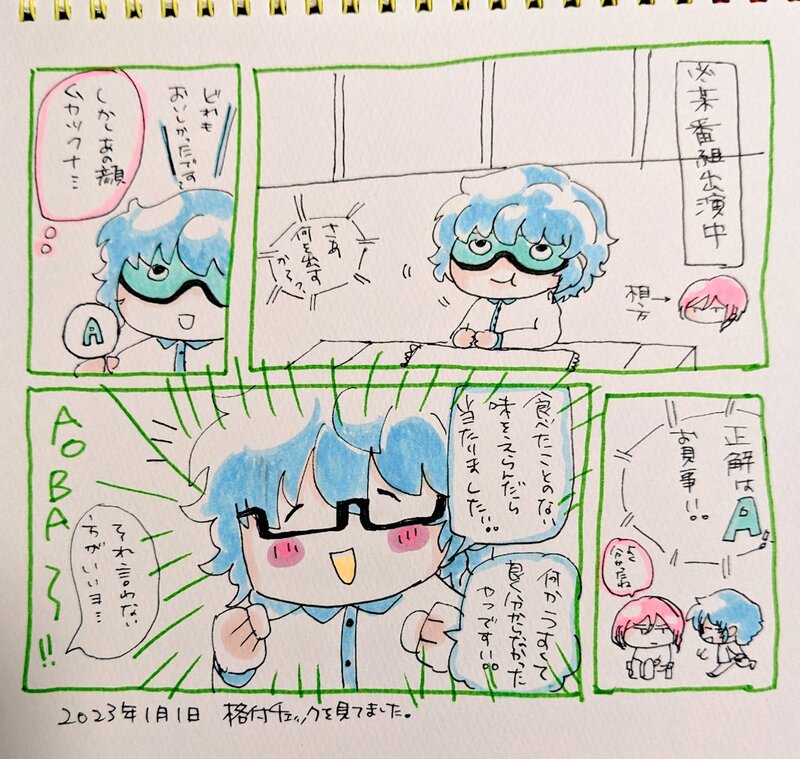 必某番組出演中
相方→
さあ
何を出す
かな?
どれも
おいしかったです
しかしあの顔
ムカツクナミ
A
正解は
A!
お見事!!。
よく
分かったね
食べたことのない
味をえらんだら
当たりました!!。
何かうすくて
良く分からなかった
やつですい。
それ言わない
方がいいヨ…
AOBA〜!!
2023年1月1日 格付チェックを見てました。